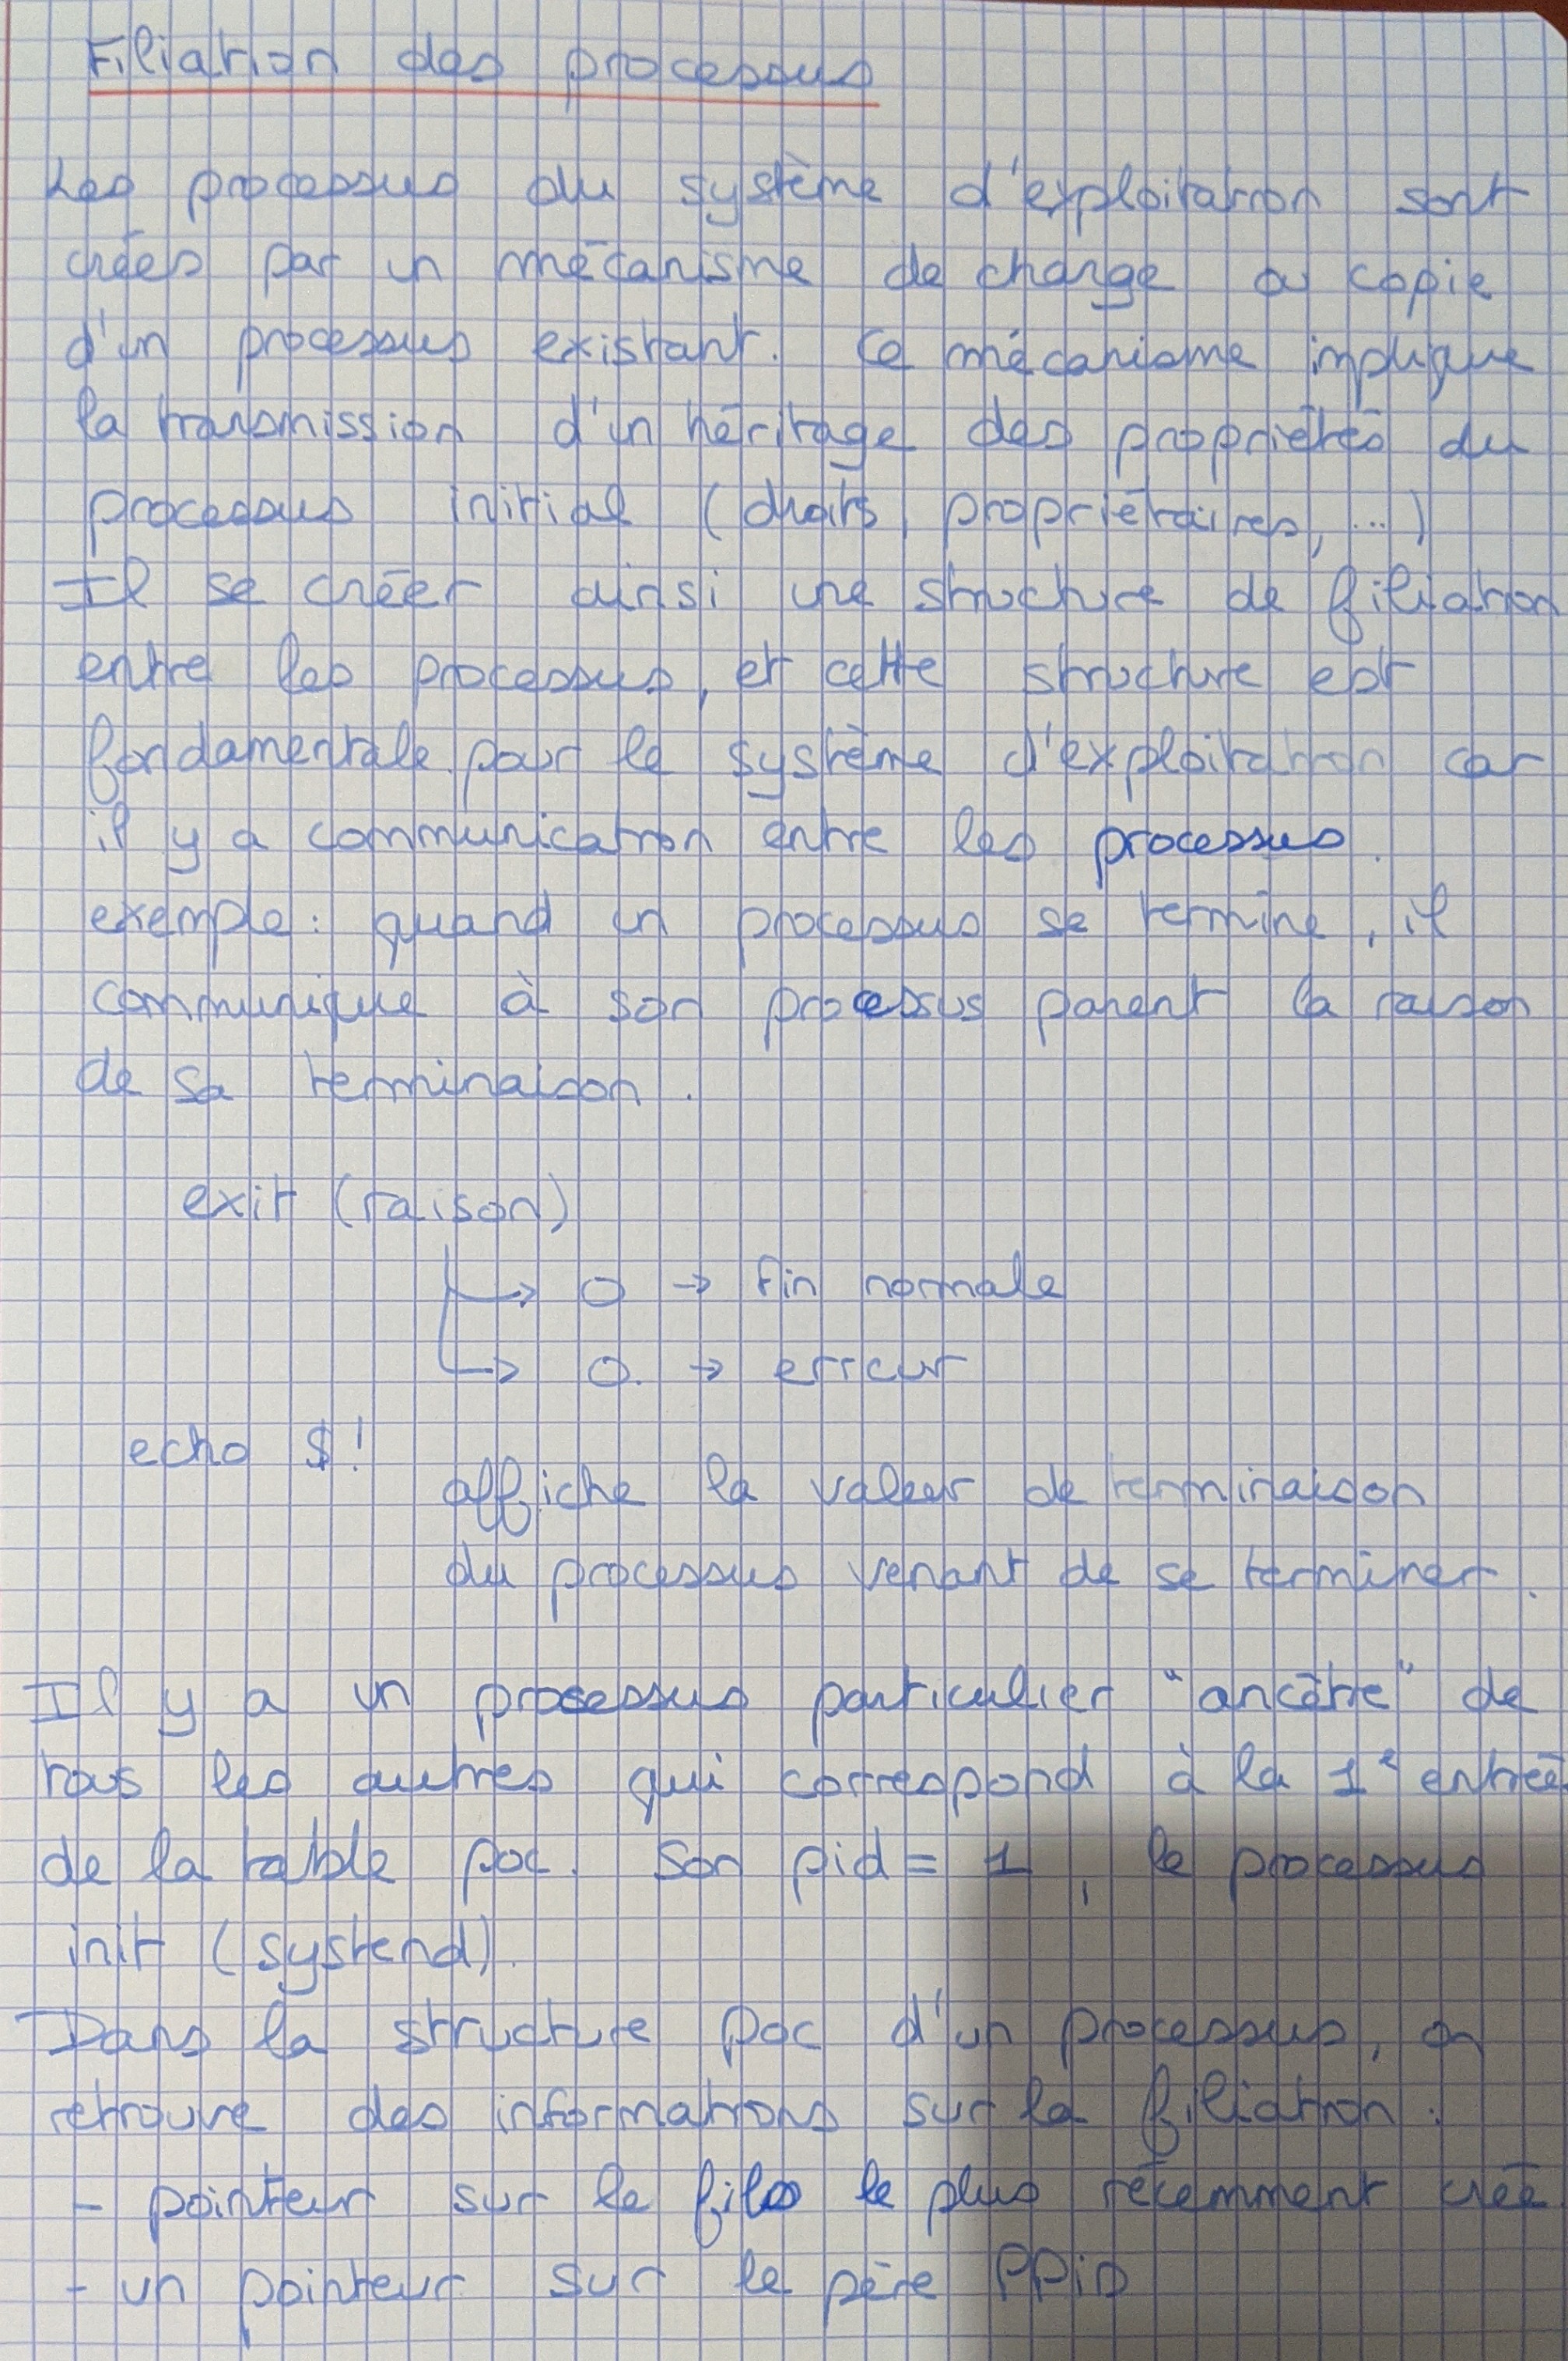 Filiation des processus
Les processus du système d'exploitation sont
créés par un mécanisme de charge ou copie
d'un processus existant. Ce mécanisme implique
la transmission d'un héritage des propriétés du
processus initial (droits, propriétaires, ...)
Il se créer ainsi une structure de filiation
entre les processus, et cette structure est
fondamentale pour le système d'exploitation car
il y a communication entre les processus.
exemple : quand un processus se termine, il
communique à son processus parent la raison
de sa terminaison.
exit (raison)
→ 0 → fin normale
→ 0. → erreur
echo $!
affiche la valeur de terminaison
du processus venant de se terminer.
Il y a un processus particulier "ancêtre" de
tous les autres qui correspond à la 1e entrée
de la table poc. Son pid = 1, le processus
init (systend).
Dans la structure poc d'un processus, on
retrouve des informations sur la filiation :
- pointeur sur le fils le plus récemment créé
- un pointeur sur le père PPiD